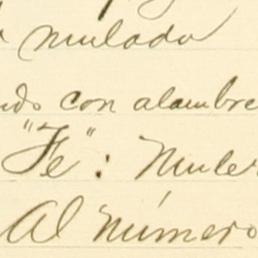 mulado
ndo con alambre
"Fe": Muler
Al número